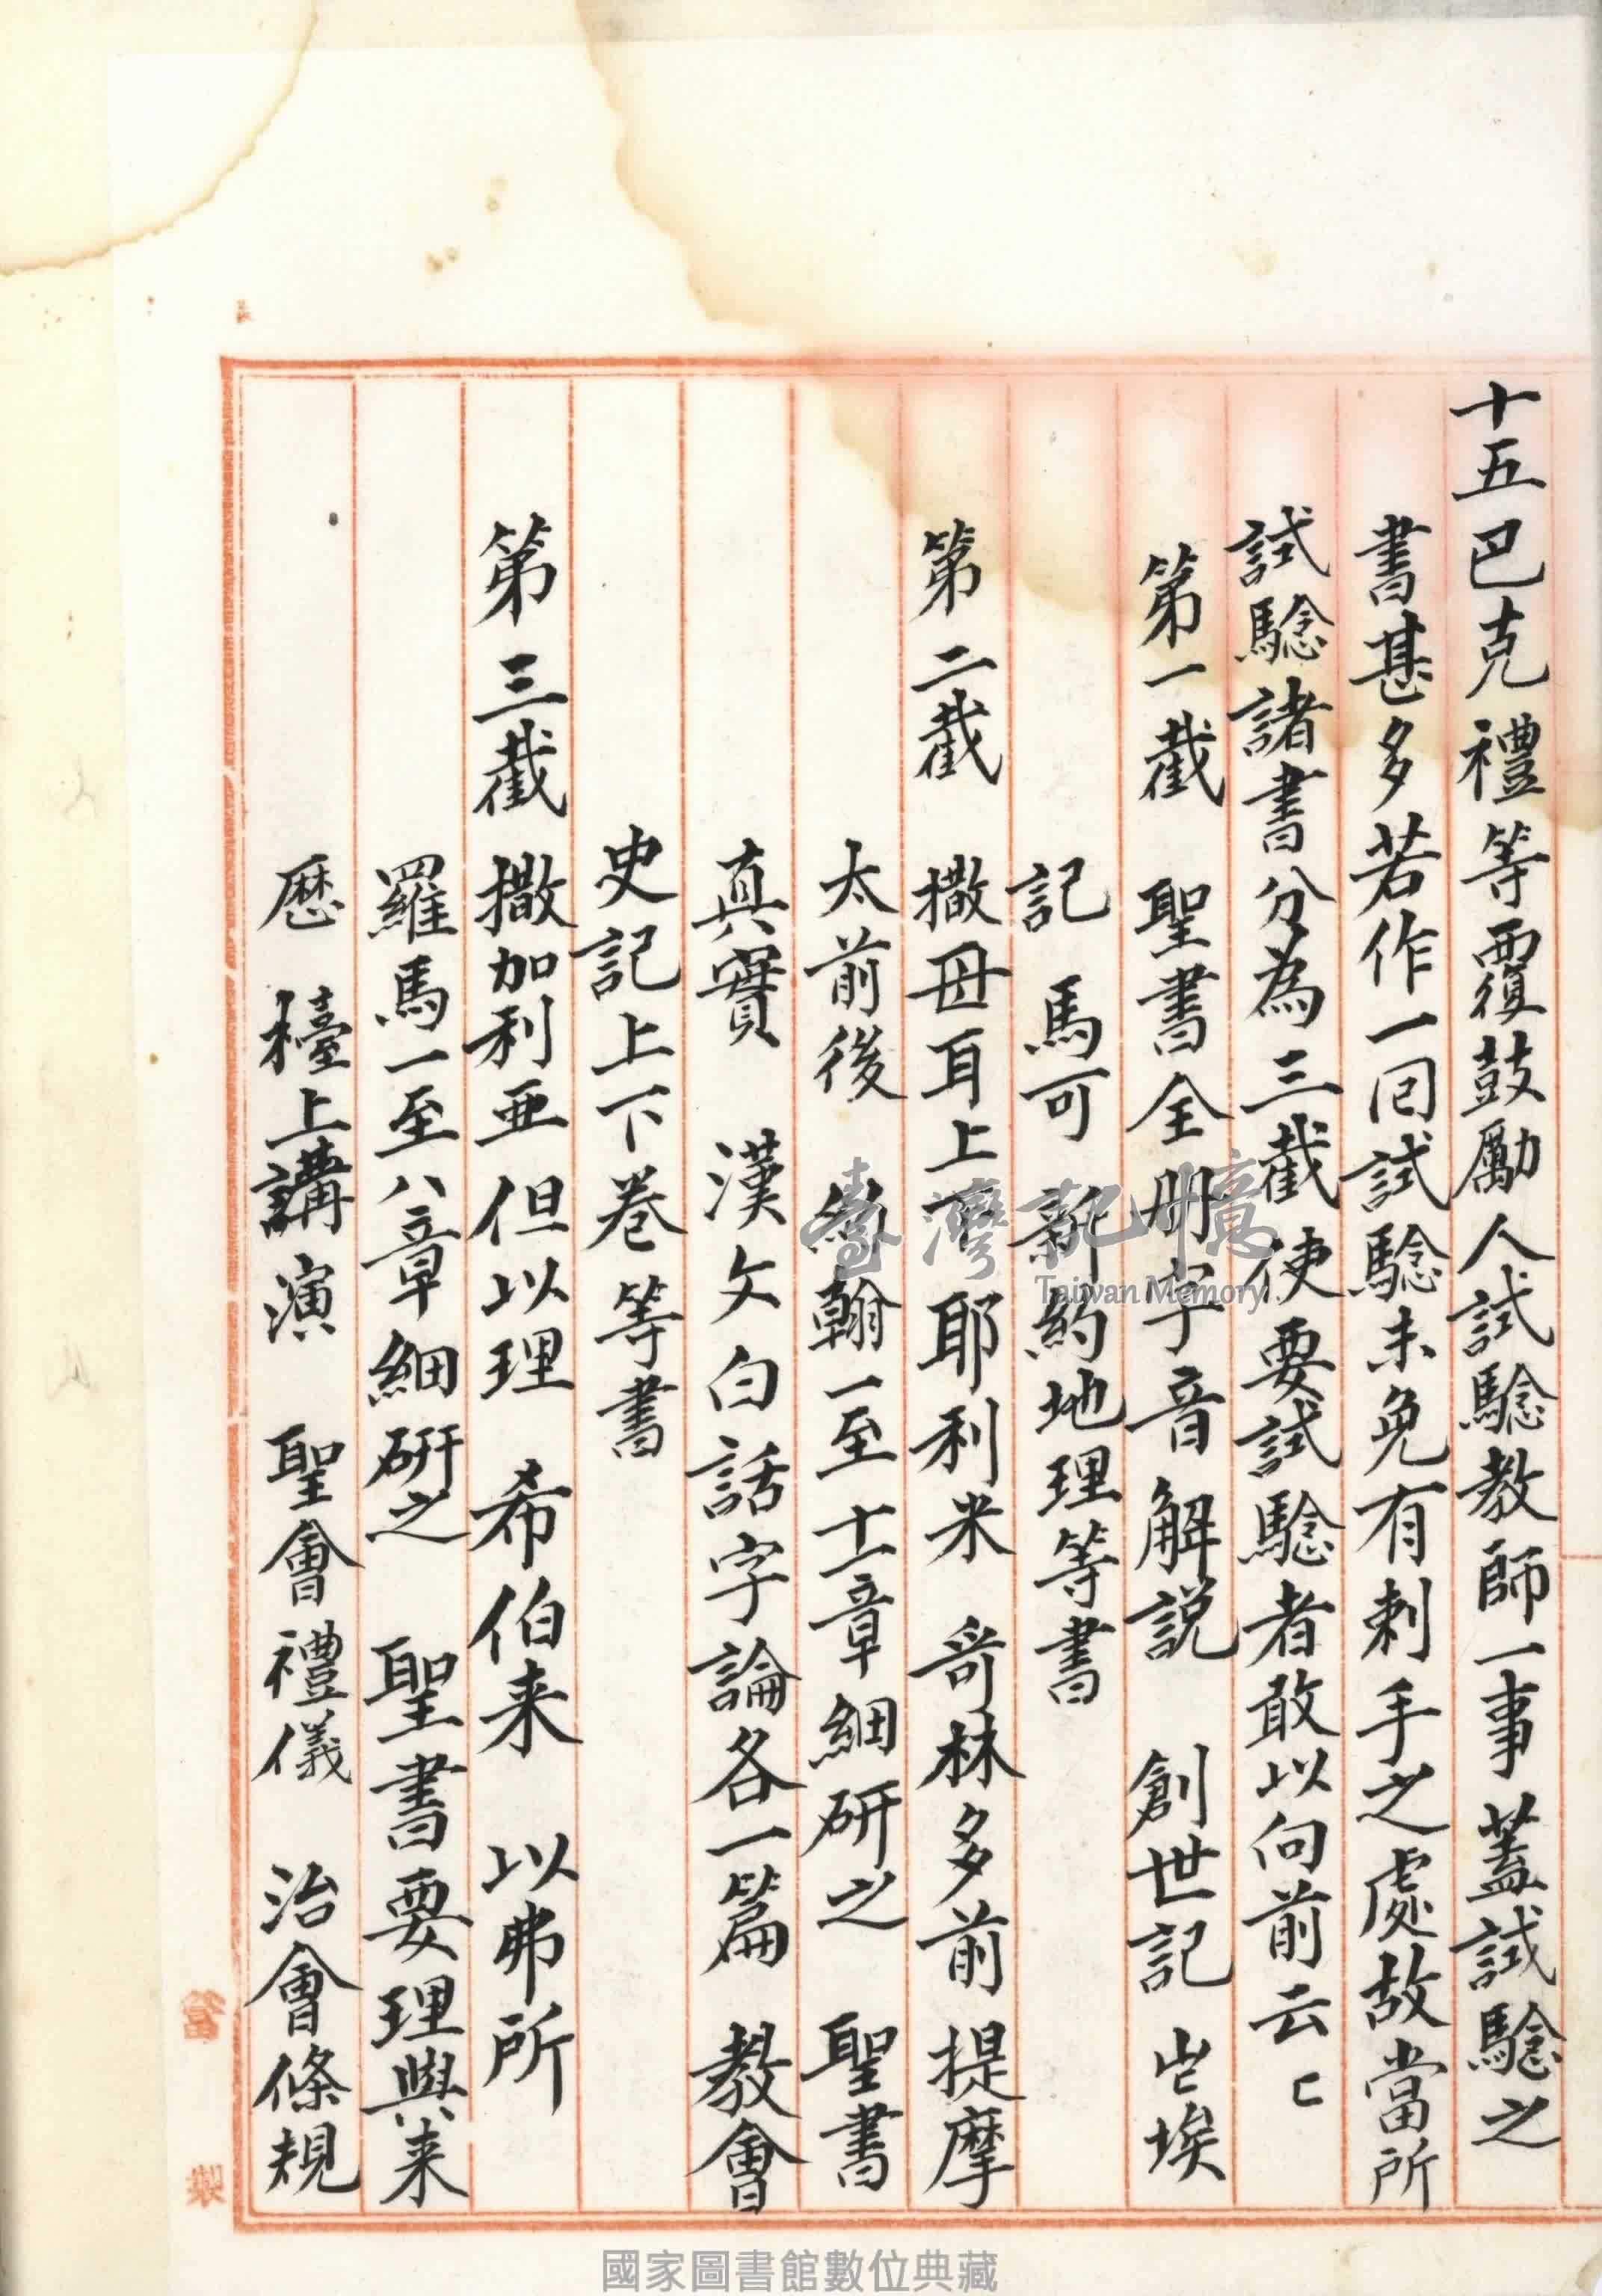 十五巴克禮等覆鼓勵人試驗教師一事蓋試驗之
書甚多若作一囘試驗未免有刺手之處故當所
試驗諸書分為三截使要試驗者敢以向前云々
第一截 聖書全册字音解説 創世記 出埃
記 馬可 新約地理等書
第二截 撒母耳上下 耶利米 哥林多前 提摩
太前後 約翰一至十二章細研之 聖書
真實 漢文白話字論各一篇 教會
史記上下卷等書
第三截 撒加利亜 但以理 希伯来 以弗所
羅馬一至八章細研之 聖書要理與来
歷 檯上講演 聖會禮儀 治會條規
臺灣記憶
Taiwan Memory
國家圖書館數位典藏